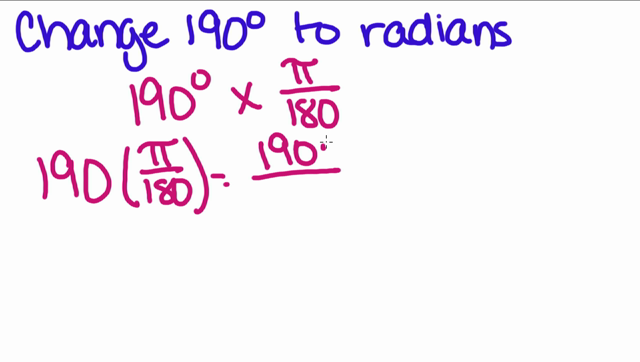 Change 190° to radians
190° × π/180
190(π/180) = 190